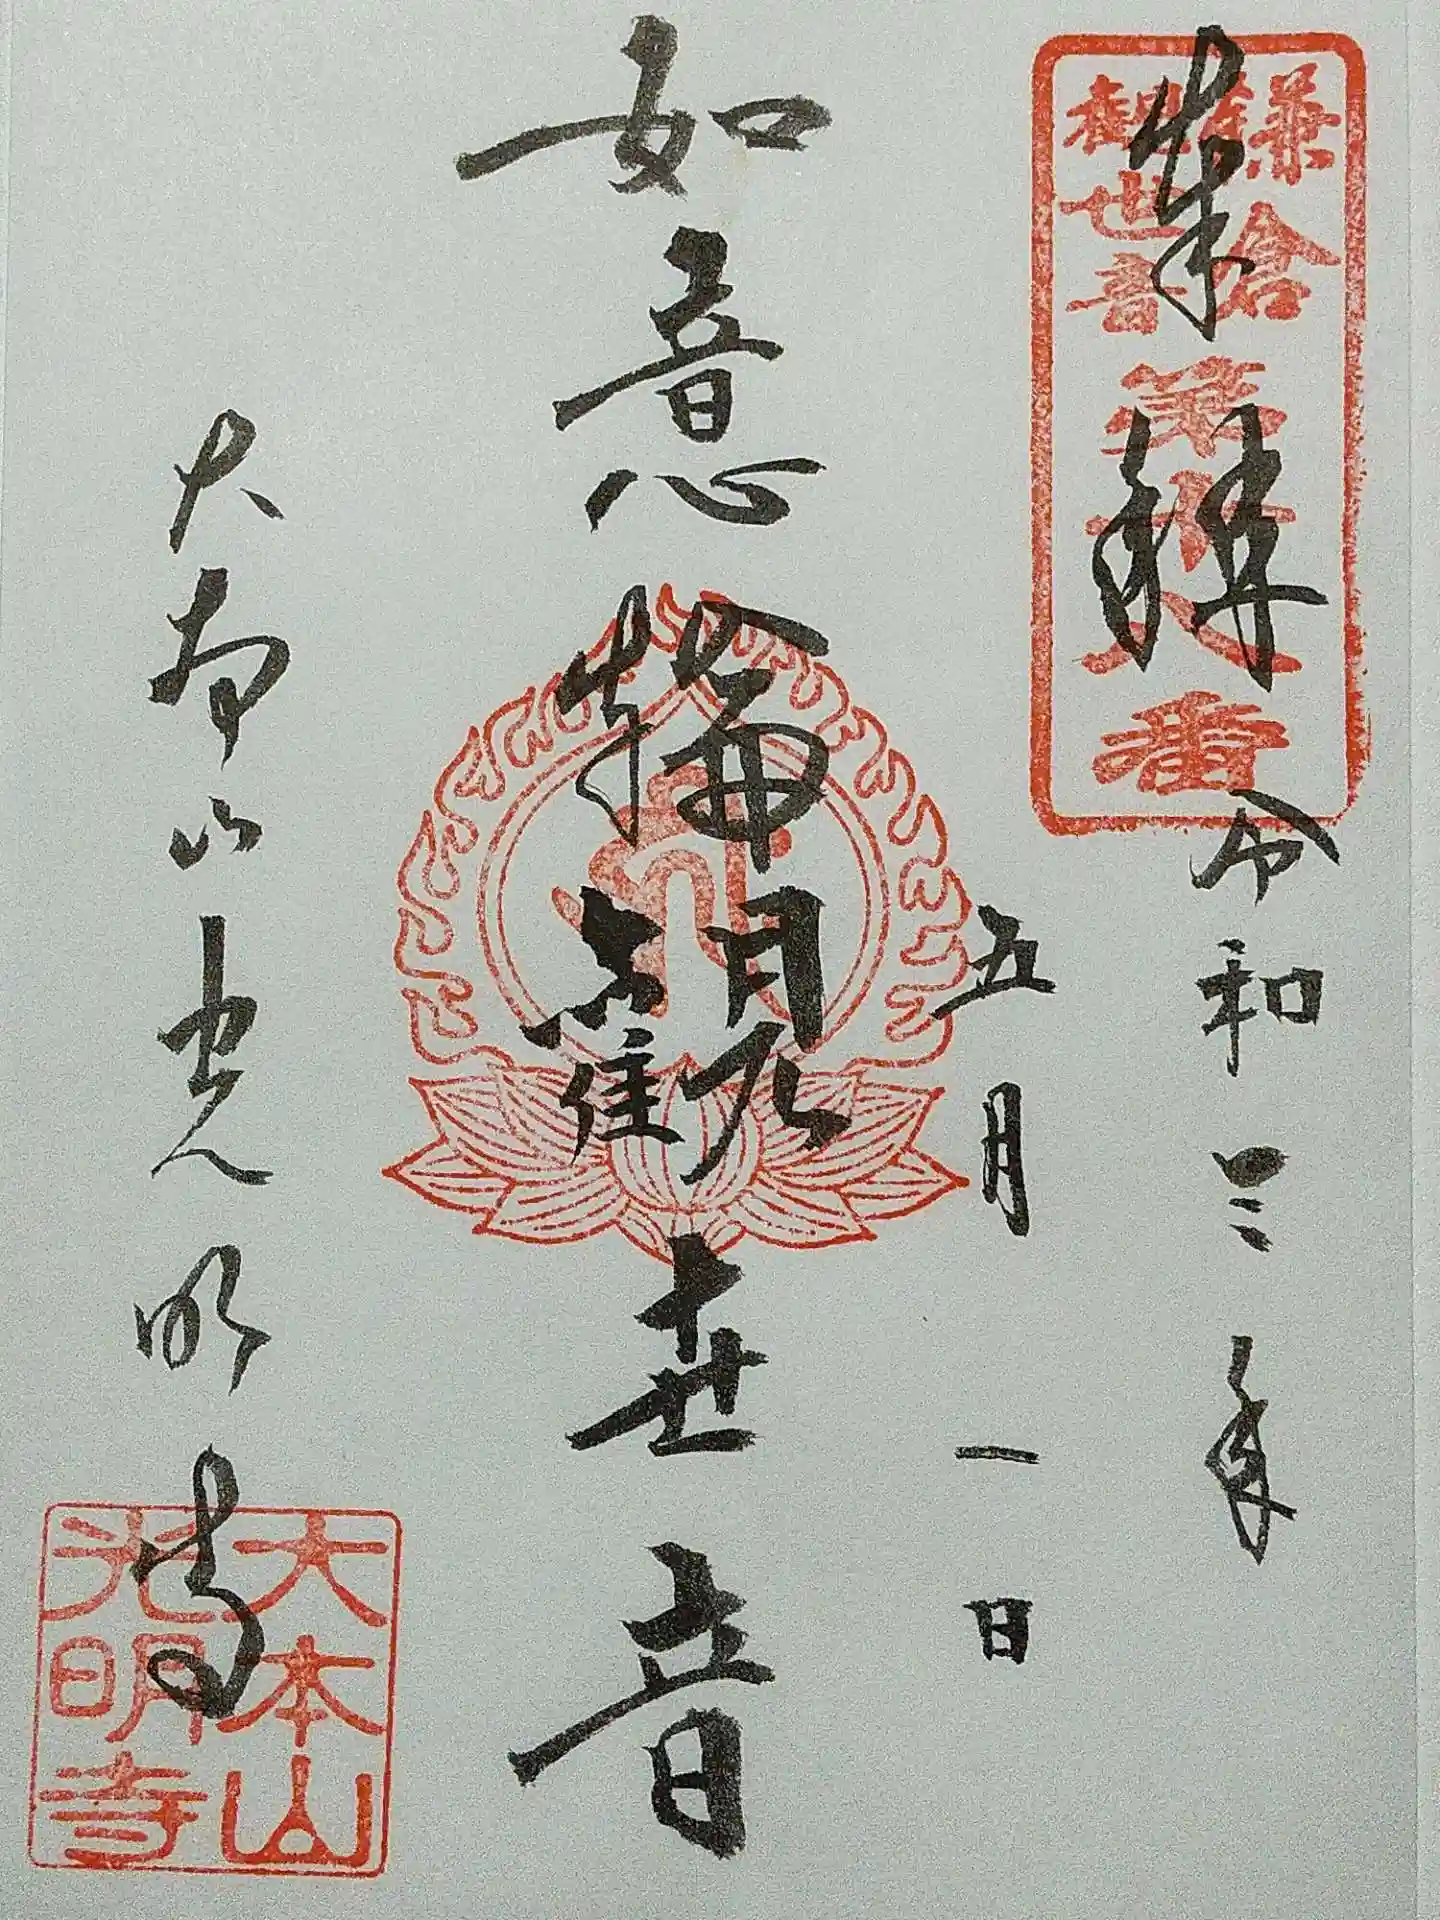 鎌倉
觀世音
第十八番
奉拝
令和三年
五月一日
如意輪觀世音
大本山光明寺
大本山
光明寺